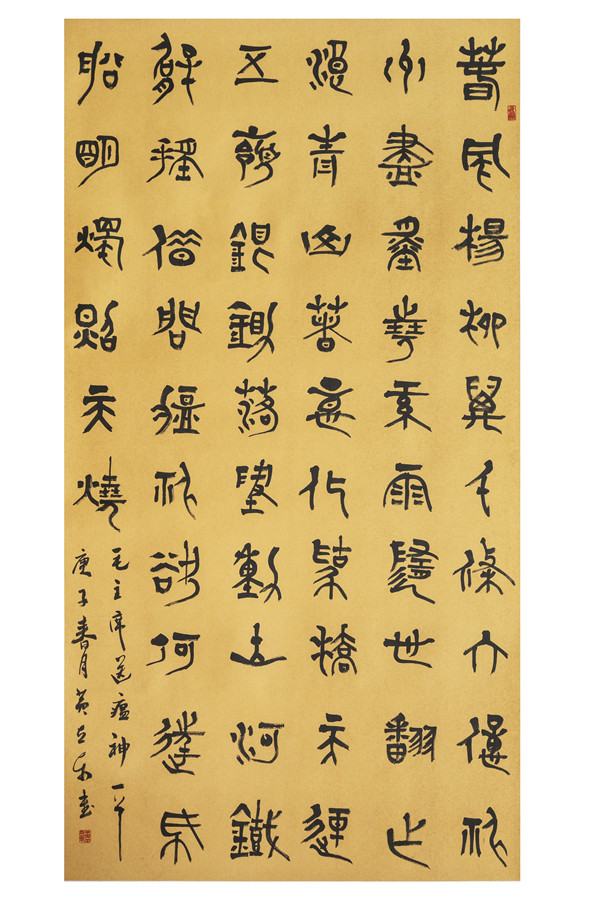 春風楊柳萬千條六億神
州盡舜堯紅雨隨心翻作
浪青山著意化為橋天連
五嶺銀鋤落地動三河鐵
臂搖借問瘟君欲何往紙
船明燭照天燒
毛主席送瘟神一首
庚子春月黄书